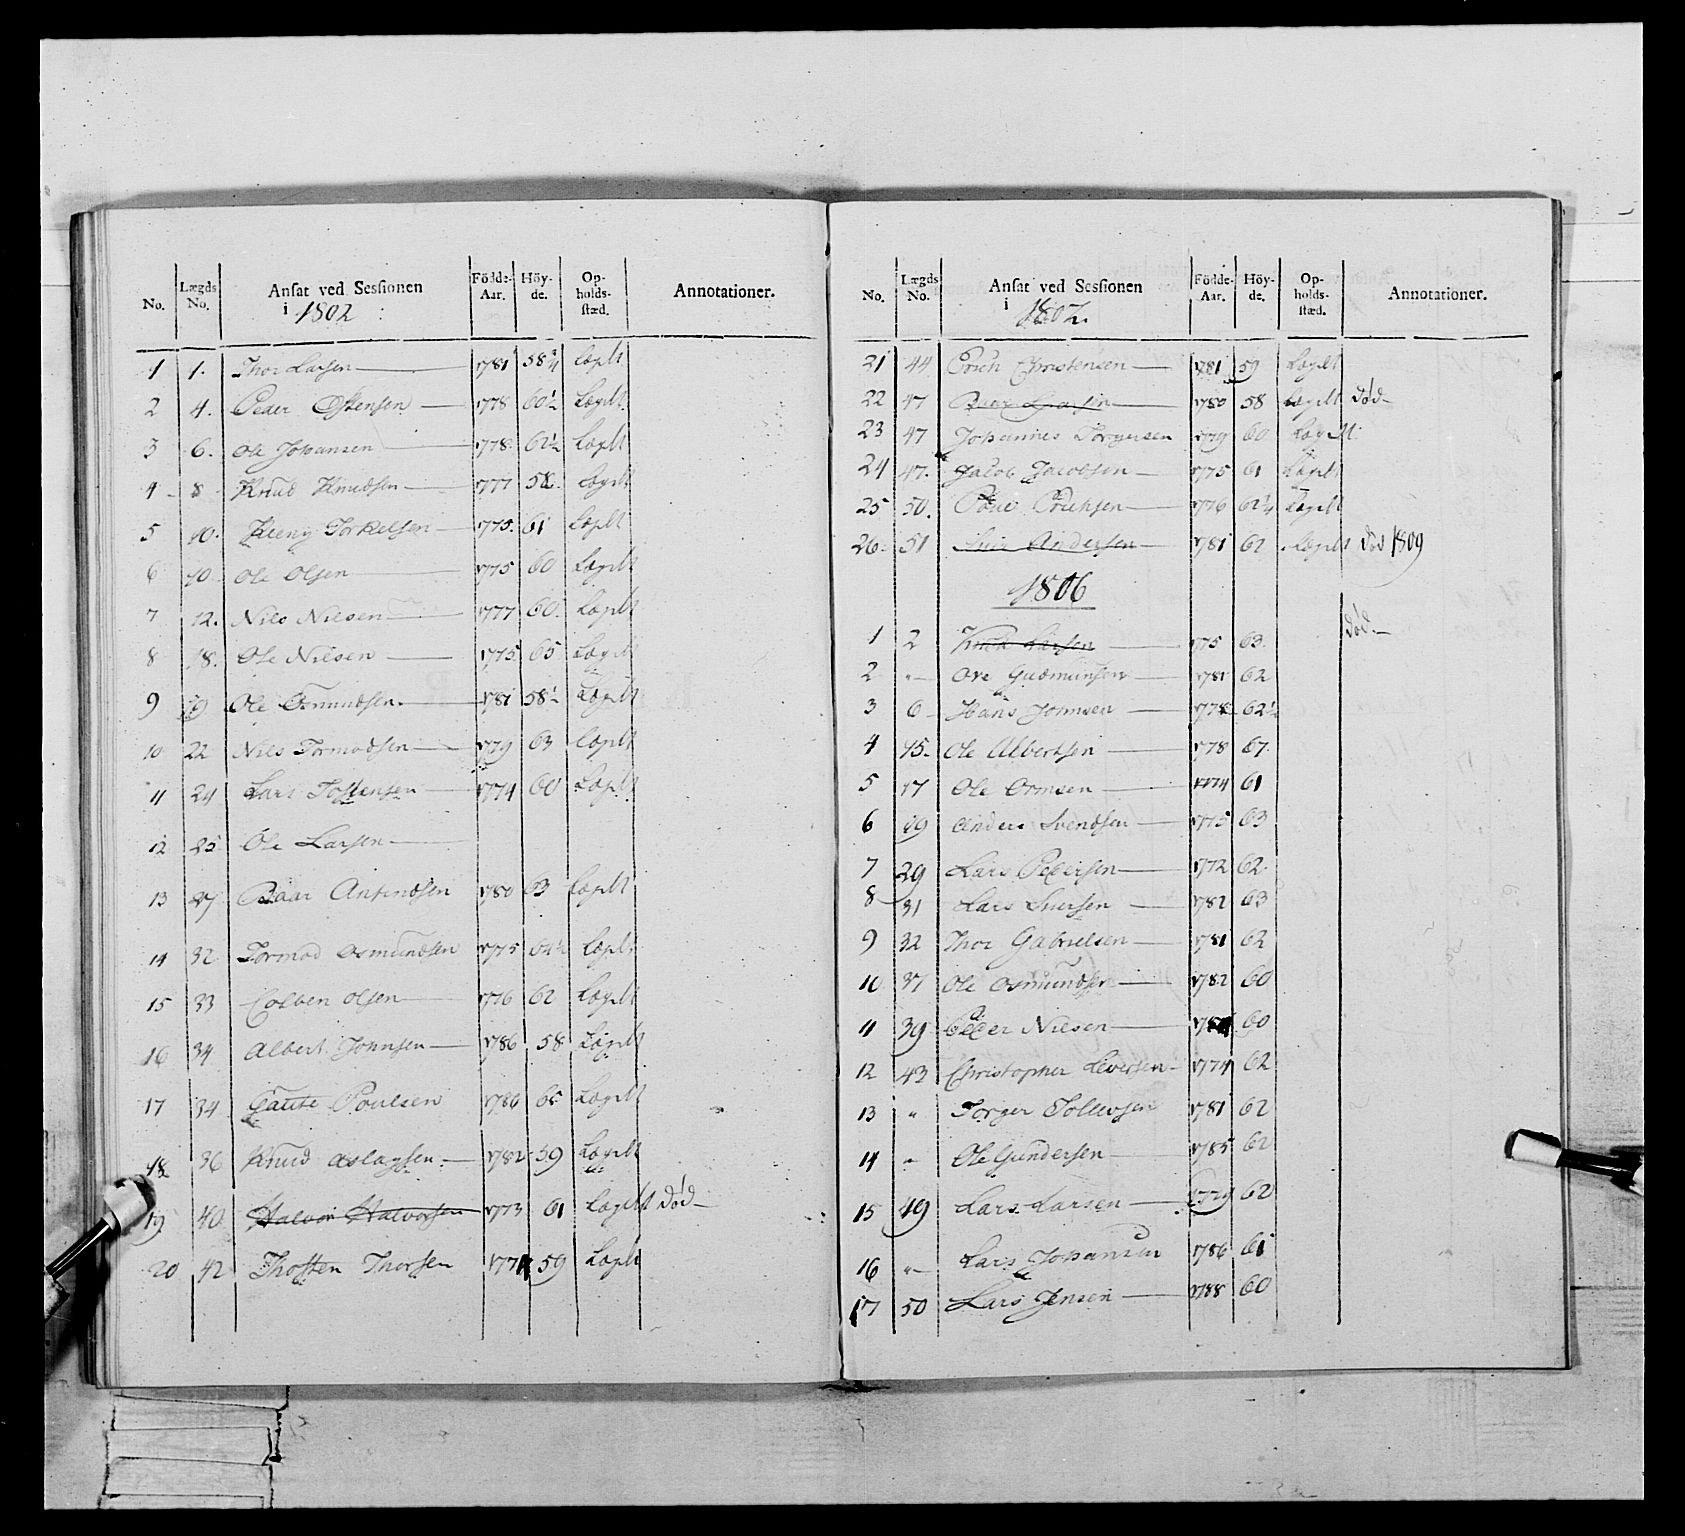 No. Lægds No. Ansat ved Sessionen i 1802 Födde-Aar. Höy-de. Op-holds-stæd. Annotationer.
1 1. Thor Larsen 1781 58 3/4 Lægdt
2 4. Peder Ostensen 1778 60 1/2 Lægdt
3 6. Ole Johansen 1778 62 1/2 Lægdt
4 8 Knud Knudsen 1777 58 Lægdt
5 10. Torkelsen 1775. 61 Lægdt
6 10 Ole Olsen 1775 60 Lægdt
7 12. Nils Nilsen 1777 60. Lægdt
8 18. Ole Nilsen 1775. 65 Lægdt
9 19 Ole Osmundsen 1781 58 1/2 Lægdt
10 22 Nils Tormodsen 1779 63 Lægdt
11 24 Lars Tostensen 1774 60 Lægdt
12 25 Ole Larsen
13 27 Baar Antendsen 1780 63 Lægdt
14 32 Tormod Osmundsen 1775 64 1/2 Lægdt
15 33 Colben Olsen 1776 62 Lægdt
16 34 Albert Johnsen 1786 58 Lægdt
17 34 Gaute Poulsen 1780 65 Lægdt
18 36 Knud Aslagsen 1782 59 Lægdt
19 40 Halvor Halvorsen 1773 61 Lægdt død
20 42 Thosten Thorsen 1771 59 Lægdt
No. Lægds No. Ansat ved Sessionen i 1802. Födde-Aar. Höy-de. Op-holds-stæd. Annotationer.
21 44 Erich Christensen 1781 59 Lægdt
22 47 1780 58 Lægdt død
23 47 Johannes Torgersen 1779 60 Lægdt
24 47. Jacob Jacobsen 1775 61 Lægdt
25 50. Poul Erichsen 1776 62 1/4 Lægdt
26 51 Andersen 1781 62 Lægdt død 1809
1806
1 2 Knud Larsen 1775 63. død
2 " Ore Gudmunsen 1781 62
3 6 Hans Johnsen 1778 62 1/2
4 15. Ole Albertsen 1778 67.
5 17 Ole Ormsen 1774 61
6 19 Anders Svendsen 1775 63
7 29 Lars Pedersen 1772 62
8 31 Lars Iversen 1782 63
9 32 Thor Gabrielsen 1781 62
10 37 Ole Osmundsen 1782 60
11 39 Peder Nilsen 60
12 43 Christopher Leversen 1774 62
13 " Torger Tollevsen 1781 62
14 " Ole Gundersen 1785 62
15 49 Lars Larsen 1779 62
16 " Lars Johansen 1786 61
17 50 Lars Jensen 1788 60